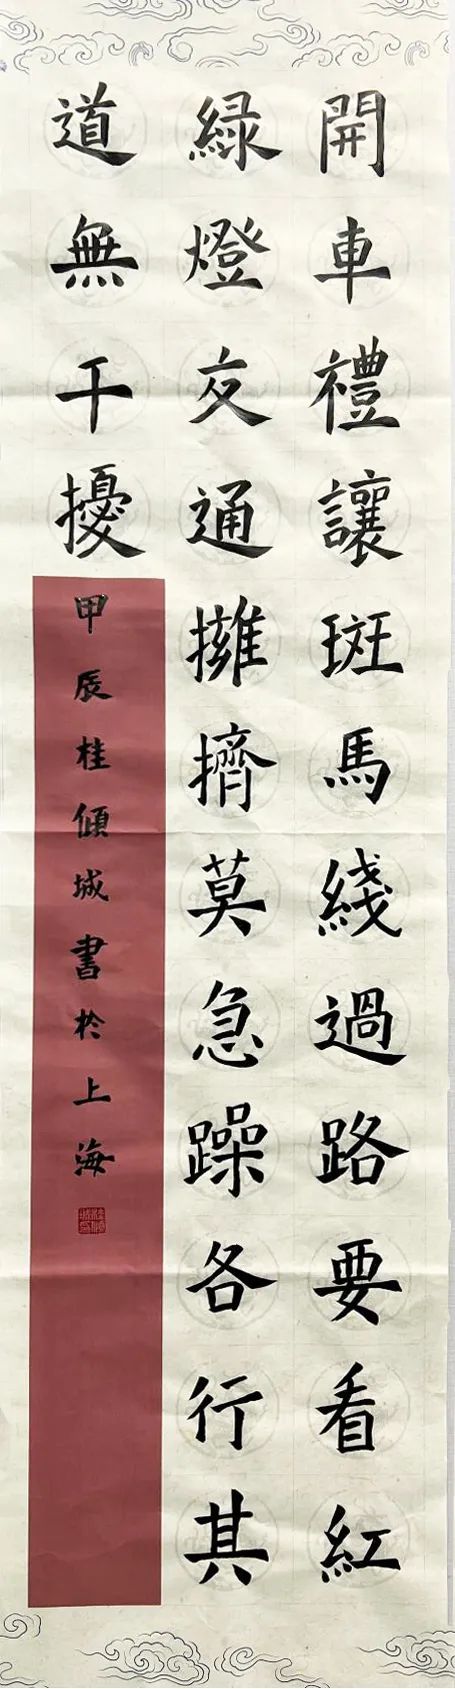 開車禮讓斑馬綫過路要看紅
綠燈交通擁擠莫急躁各行其
道無干擾
甲辰桂傾城書於上海